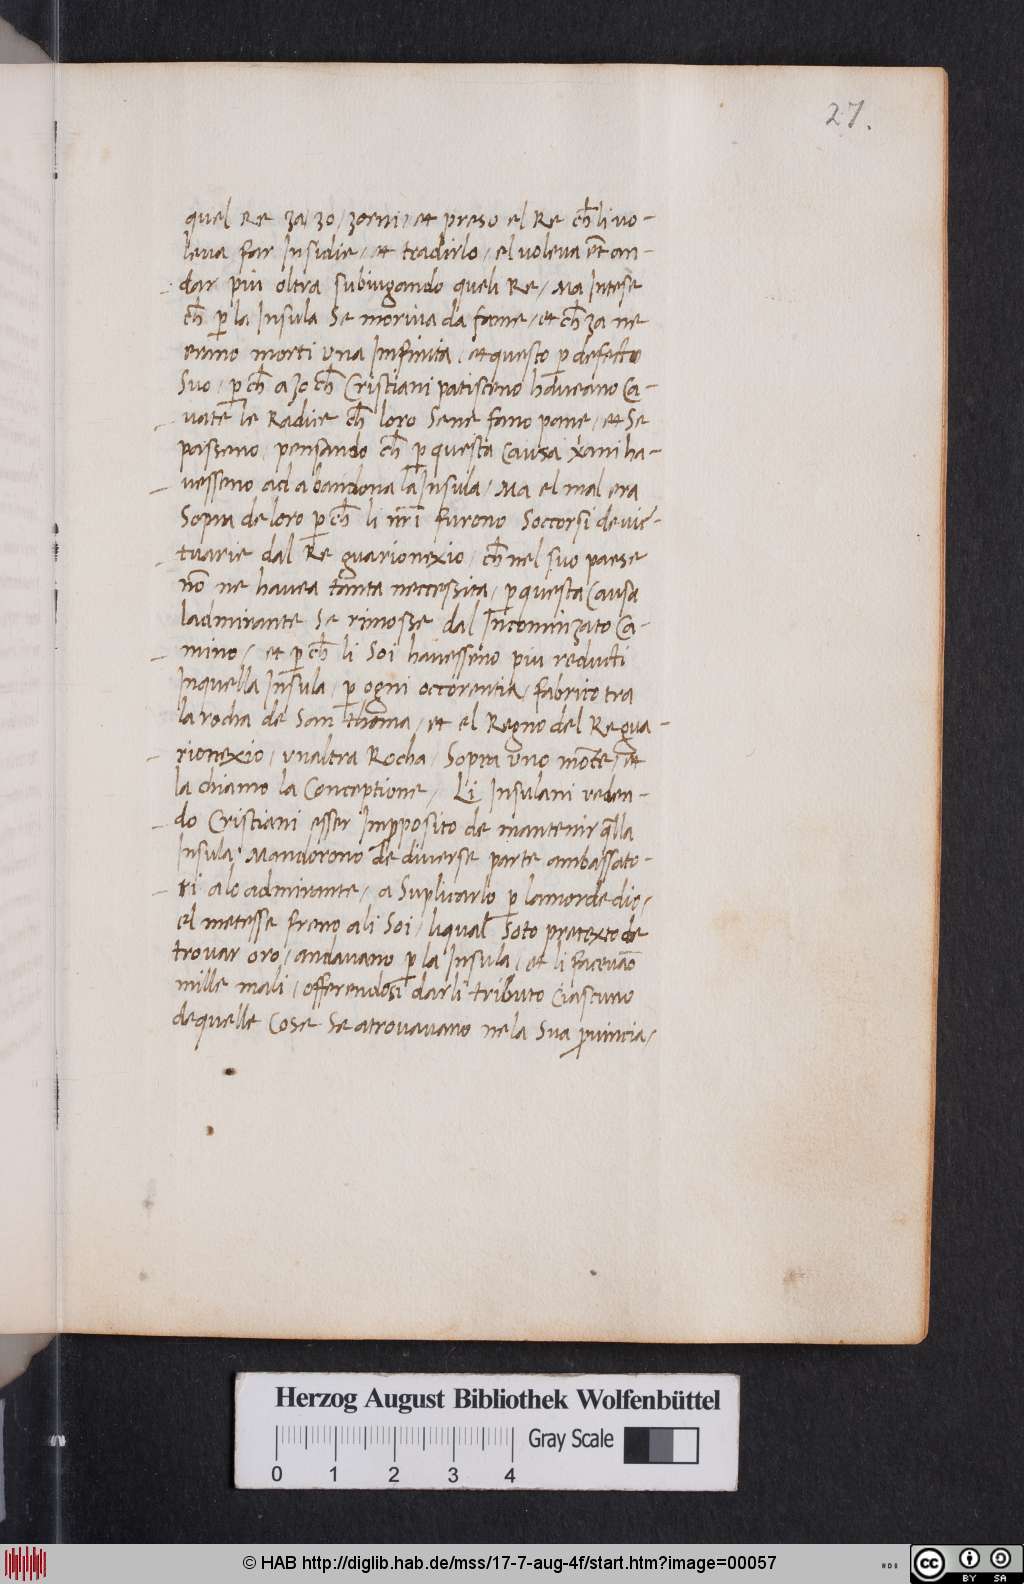 27.
quel Re za/zo/zoeni/et preso el Re ch̄ li uo-
leua far Insidie/et tradirlo/el uoleua et̄ an-
dar piu oltra subiugando queli Re/Ma Intese
ch̄ p̱ la Insula Se moriua da fame/et ch̄ za ne
erano morti una Infinita/et questo p̱ defecto
Suo/p̱ ch̄ azo ch̄ Cristiani patisceno haueano Ca-
uate le Radice ch̄ loro Sene fano pane/et Se
passeno/pensando ch̄ p̱ questa Causa xani ha-
uesseno ad abandona la Insula/Ma el mal era
Sopra de loro p̱ ch̄ li nr̄i furono Soccorsi de uic-
tuarie dal Re guarionexio/ch̄ nel suo paese
nō ne hauea tanta neccessita/p̱ questa Causa
ladmirante Se rimosse dal Incominzato Ca-
mino/et p̱ ch̄ li Soi hauesseno piu reducti
Inquella Insula/p̱ ogni occorentia/fabrico tra
la rocha de San thoma/et el Regno del Re gua-
rionexio/unaltra Rocha/Sopra uno mōte/et
la chiamo la Conceptione/Li Insulani ueden-
do Cristiani esser Inp̱posito de mantenir q̄lla
Insula/Mandorono de diuerse parte ambassato-
ri alo admirante/a Suplicarlo p̱ lamor de dio/
el metesse freno ali Soi/liqual Soto pretexto de
trouar oro/andauano p̱ la Insula/et li faceuāo
mille mali/offerendosi darli tributo Ciascuno
dequelle Cose Se atrouauano nela Sua prouincia/
Herzog August Bibliothek Wolfenbüttel
0 1 2 3 4
Gray Scale
© HAB http://diglib.hab.de/mss/17-7-aug-4f/start.htm?image=00057
cc BY SA